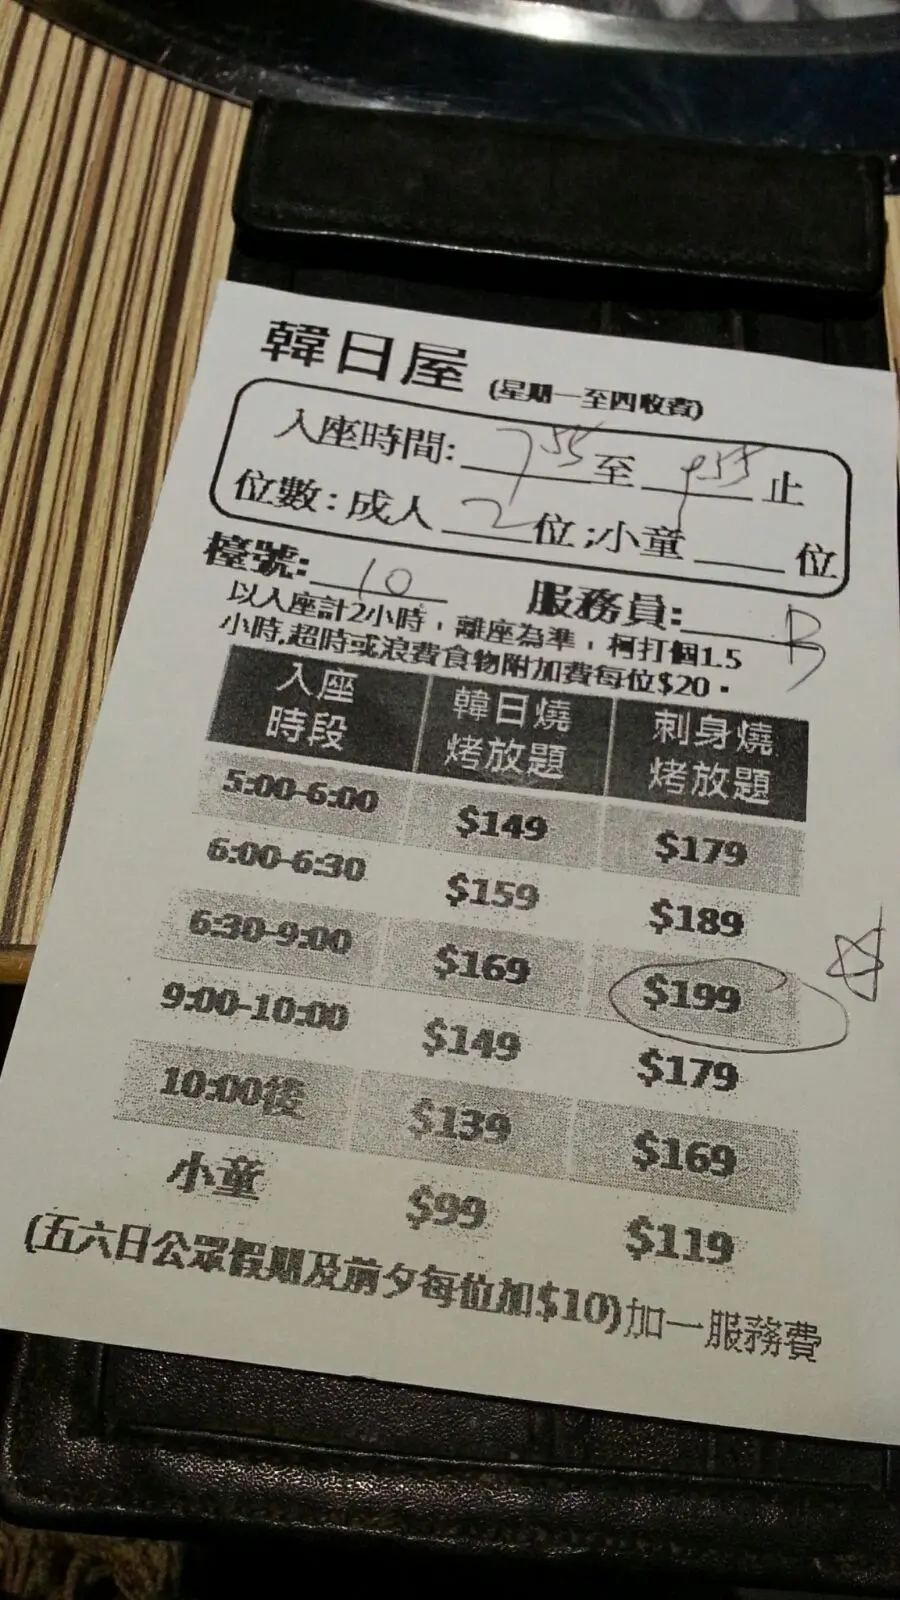 韓日屋 (星期一至四收費)
入座時間: 755 至 955 止
位數: 成人 2 位;小童 ____ 位
檯號: 10 服務員: B
以入座計2小時，離座為準，柯打個1.5
小時,超時或浪費食物附加費每位$20。
入座時段 韓日燒烤放題 刺身燒烤放題
5:00-6:00 $149 $179
6:00-6:30 $159 $189
6:30-9:00 $169 $199
9:00-10:00 $149 $179
10:00後 $139 $169
小童 $99 $119
(五六日公眾假期及前夕每位加$10)加一服務費